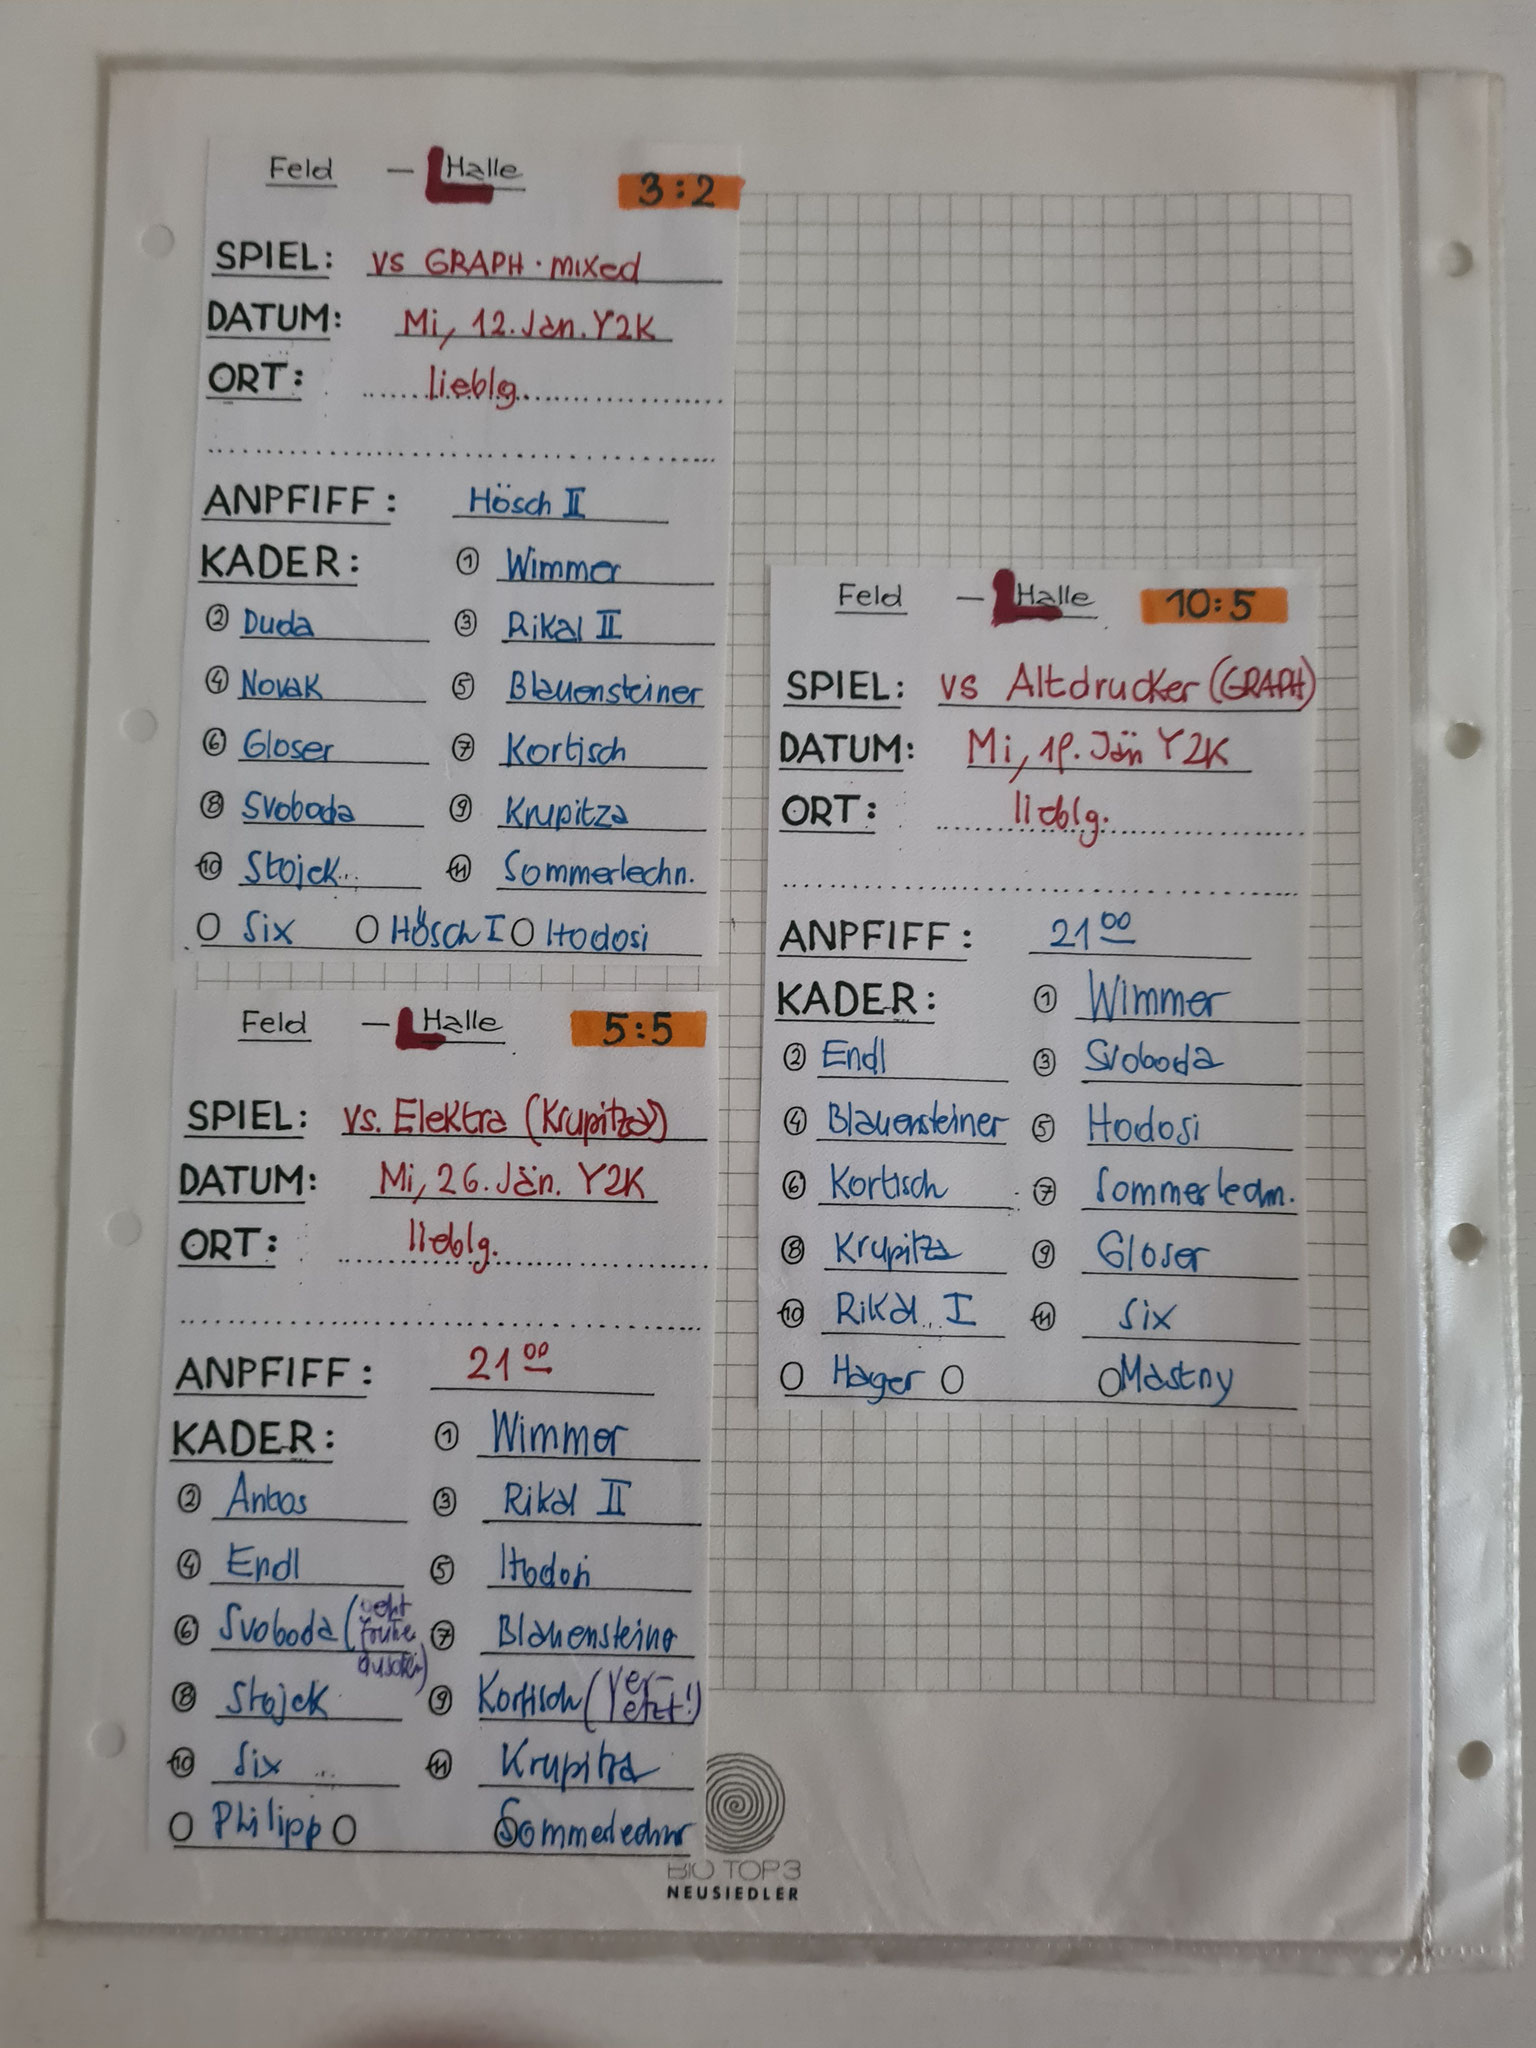 Feld – Halle 3:2
SPIEL: vs GRAPH·mixed
DATUM: Mi, 12. Jän. Y2K
ORT: lieblg.
ANPFIFF: Hösch II
KADER: ① Wimmer
② Duda ③ Rikal II
④ Novak ⑤ Blauensteiner
⑥ Gloser ⑦ Kortisch
⑧ Svoboda ⑨ Krupitza
⑩ Stojek ⑪ Sommerlechn.
Six Hösch I Hodosi
Feld – Halle 5:5
SPIEL: vs. Elektra (Krupitza)
DATUM: Mi, 26. Jän. Y2K
ORT: lieblg.
ANPFIFF: 21 00
KADER: ① Wimmer
② Antos ③ Rikal II
④ Endl ⑤ Hodosi
⑥ Svoboda (geht ⑦ Blauensteiner
früher
duschen)
⑧ Stojek ⑨ Kortisch (Ver-
letzt!)
⑩ Six ⑪ Krupitza
Philipp Sommerlechner
Feld – Halle 10:5
SPIEL: vs Altdrucker (GRAPH)
DATUM: Mi, 19. Jän Y2K
ORT: lieblg.
ANPFIFF: 21 00
KADER: ① Wimmer
② Endl ③ Svoboda
④ Blauensteiner ⑤ Hodosi
⑥ Kortisch ⑦ Sommerlechn.
⑧ Krupitza ⑨ Gloser
⑩ Rikal I ⑪ Six
Hager Mastny
BIO TOP 3
NEUSIEDLER